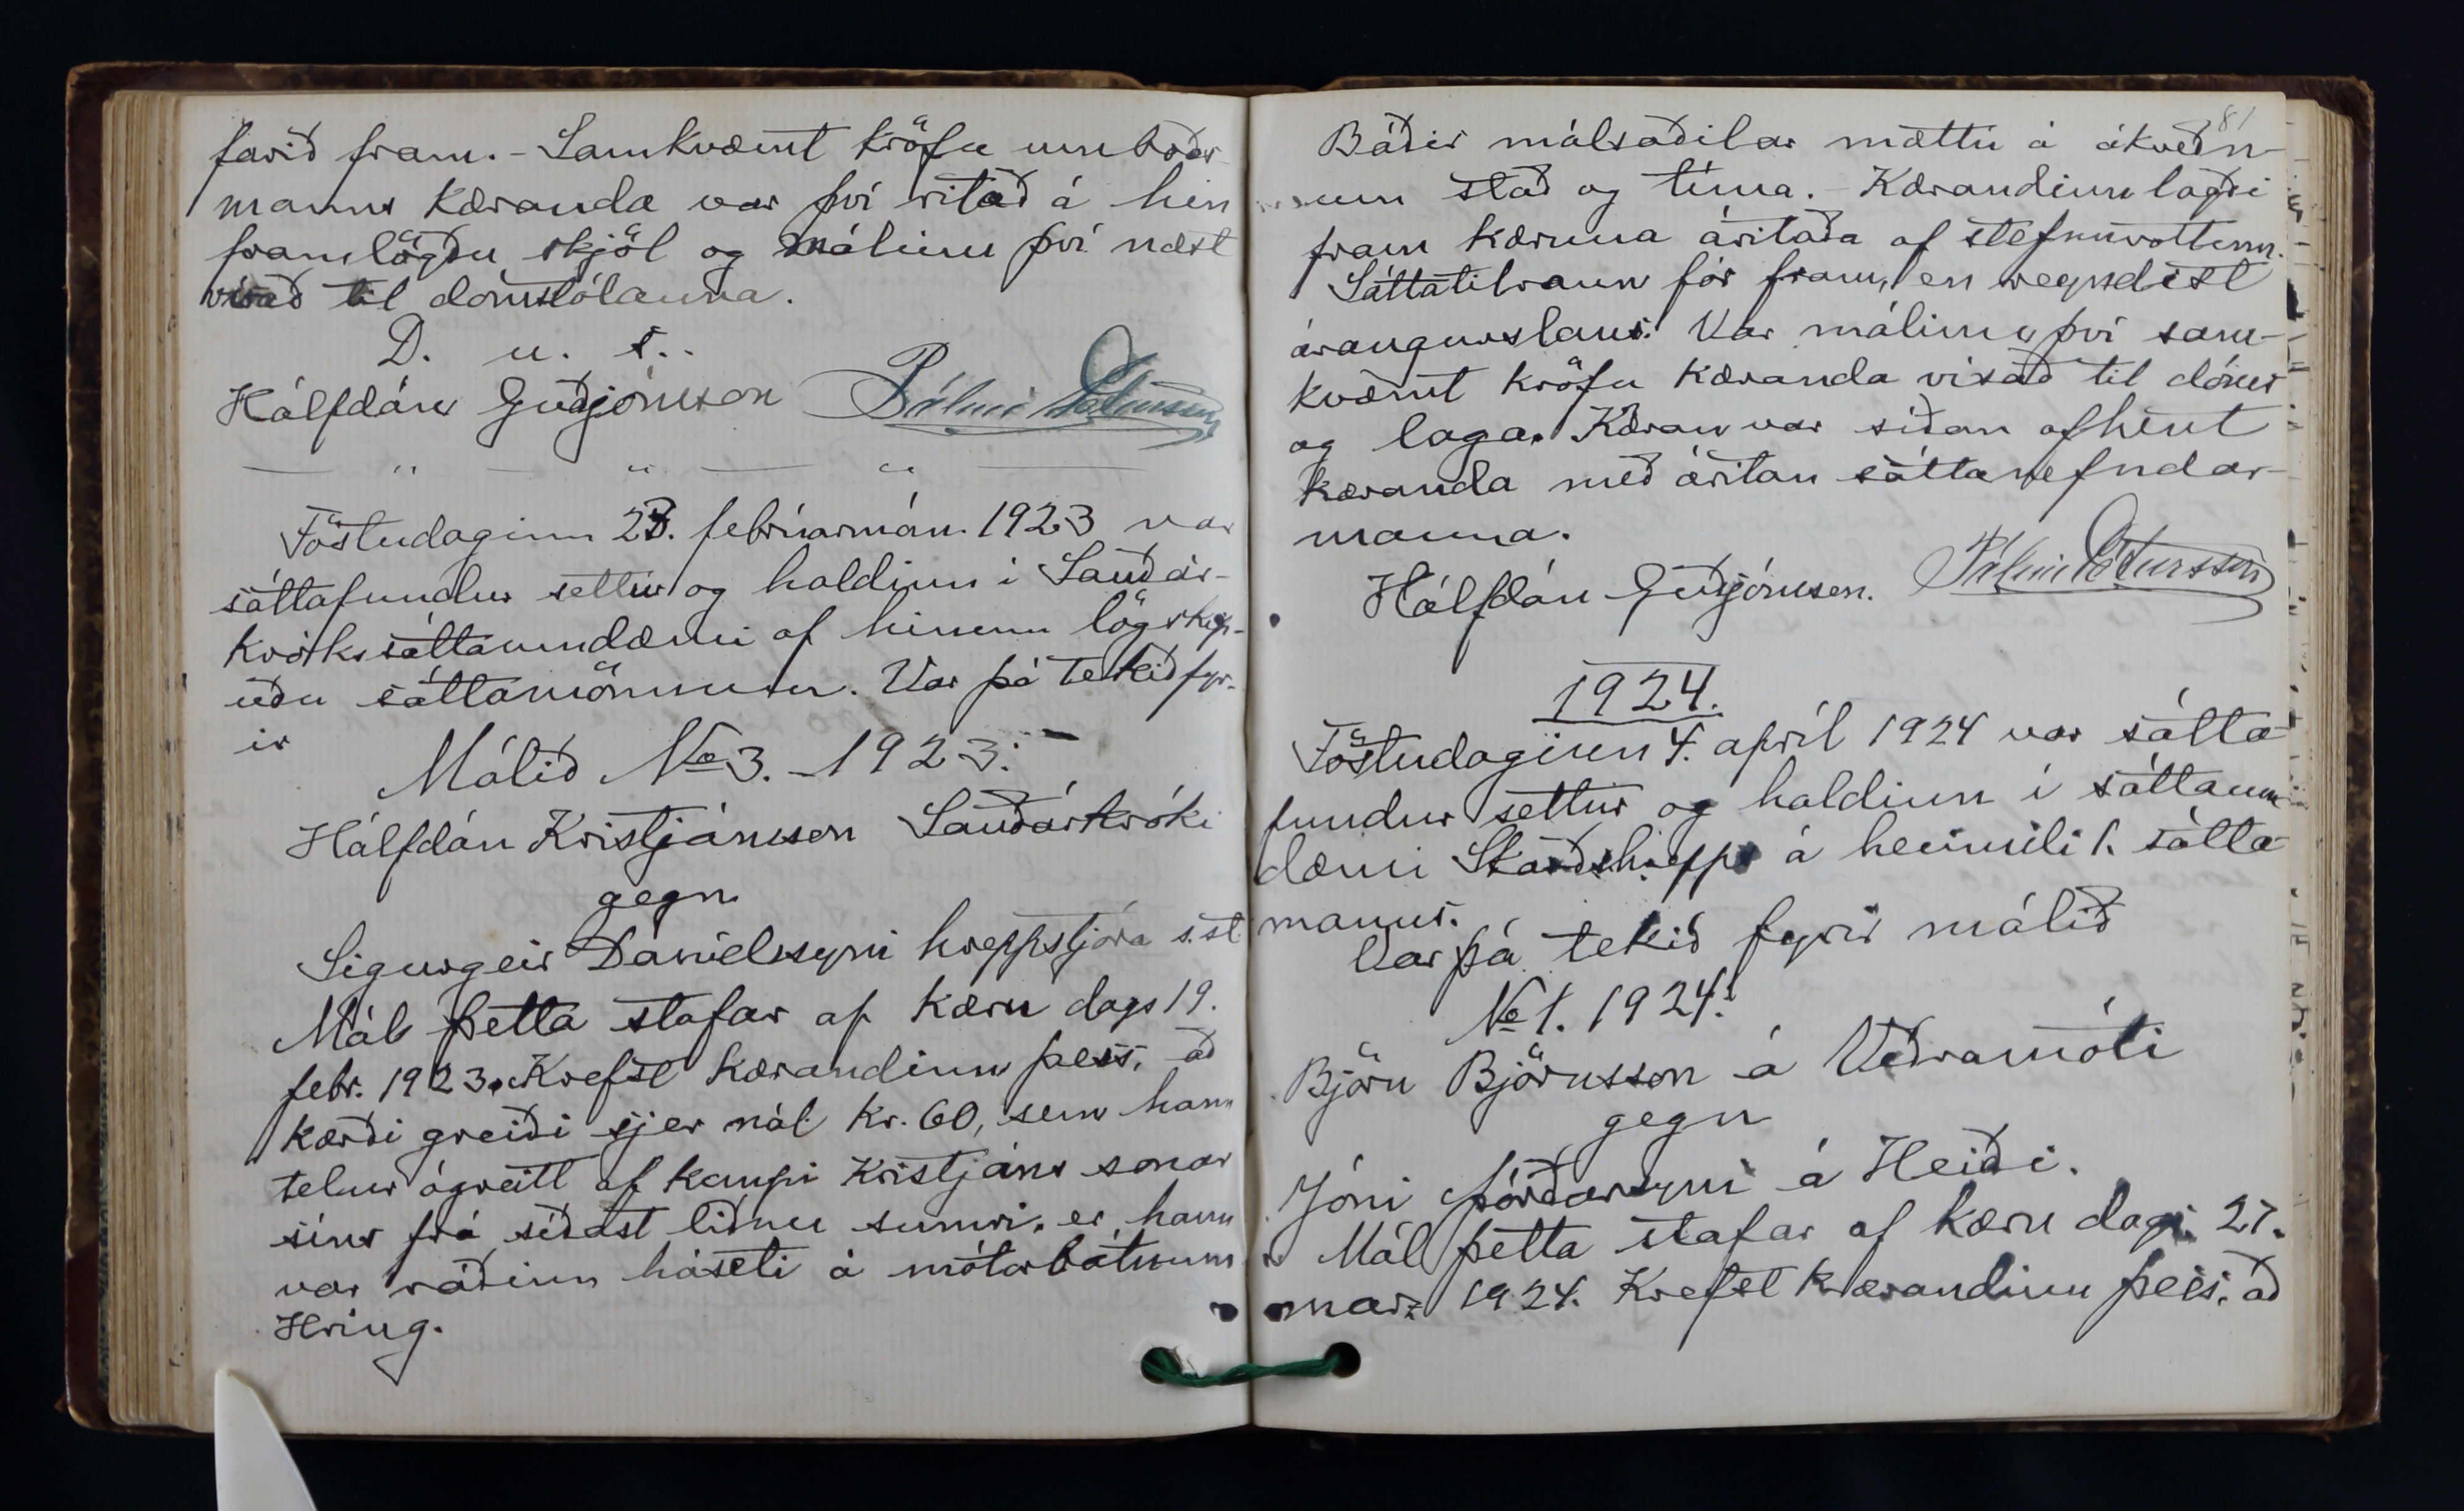 farið fram. - Samkvæmt kröfu umboðs-
manns kæranda var því ritað á hin
framlögðu skjöl og málinu því næst
vísað til dómstólanna.
D. u. s..
Hálfdán Guðjónsson Pálmi Pétursson
— " — " — " —
Föstudaginn 23. febrúarmán. 1923 var
sáttafundur settur og haldinn í Sauðár-
króks sáttaumdæmi af hinum lögskip-
uðu sáttamönnum. Var þá tekið fyr-
ir
Málið No 3. - 1923:
Hálfdán Kristjánsson Sauðárkróki
gegn
Sigurgeir Daníelssyni hreppstjóra s.st.
Mál þetta stafar af kæru dags 19.
febr. 1923. Krefst kærandinn þess, að
kærði greiði sjer nál. kr. 60, sem hann
telur ógreitt af kaupi Kristjáns sonar
síns frá síðast liðnu sumri, er hann
var ráðinn háseti á mótorbátnum
Hring.
81
Báðir málsaðilar mættu á ákveðn-
um stað og tíma. - Kærandinn lagði
fram kæruna áritaða af stefnuvottum.
Sáttatilraun fór fram, en reyndist
árangurslaus. Var málinu því sam-
kvæmt kröfu kæranda vísað til dóms
og laga. Kæran var síðan afhent
kæranda með áritan sáttanefndar-
manna.
Hálfdán Guðjónsson. Pálmi Pétursson
1924.
Föstudaginn 4. apríl 1924 var sátta-
fundur settur og haldinn í sáttaum-
dæmi Skarðshrepps á heimili 1. sátta-
manns.
Var þá tekið fyrir málið
No 1. 1924:
Björn Björnsson á Veðramóti
gegn
Jóni Þórðarsyni á Heiði.
Mál þetta stafar af kæru dags. 27.
marz 1924. Krefst kærandinn þess, að